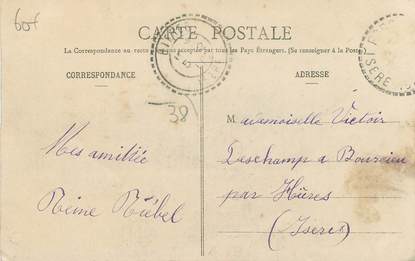 60f
CARTE POSTALE
La Correspondance au recto n'est pas acceptée par tous les Pays Étrangers. (Se renseigner à la Poste)
CORRESPONDANCE
ADRESSE
ISERE
38
Mes amitiée
Reine Riebel
Mademoiselle Victoir
Deschamp a Bourcieu
par Hières
(Isère)